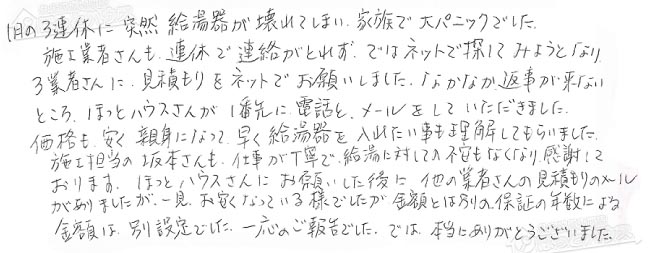 1月の3連休に突然給湯器が壊れてしまい、家族で大パニックでした。
施工業者さんも、連休で連絡がとれず、ではネットで探してみようとなり
3業者さんに、見積もりをネットでお願いしました、なかなか返事が来ない
ところ、ほっとハウスさんが1番先に電話と、メールをしていただきました。
価格も、安く親身になって、早く給湯器を入れたい事も理解してもらいました。
施工担当の坂本さんも、仕事が丁寧で、給湯に対しての不安もなくなり感謝して
おります。ほっとハウスさんにお願いした後に、他の業者さんの見積もりのメール
がありましたが、一見、お安くなっている様でしたが金額とは別の、保証の年数による
金額は、別設定でした、一応のご報告でした、では、本当にありがとうございました。